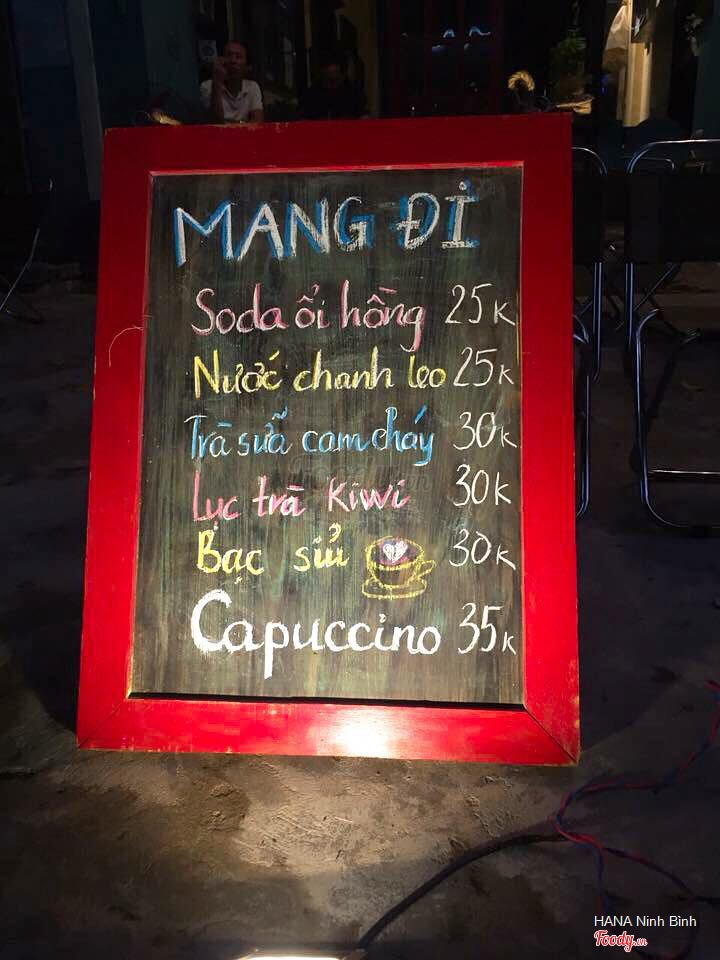 MANG ĐI
Soda ổi hồng 25K
Nước chanh leo 25K
Trà sữa cam cháy 30K
Lục trà Kiwi 30K
Bạc sỉu 30K
Capuccino 35K
HANA Ninh Bình
Foody.vn